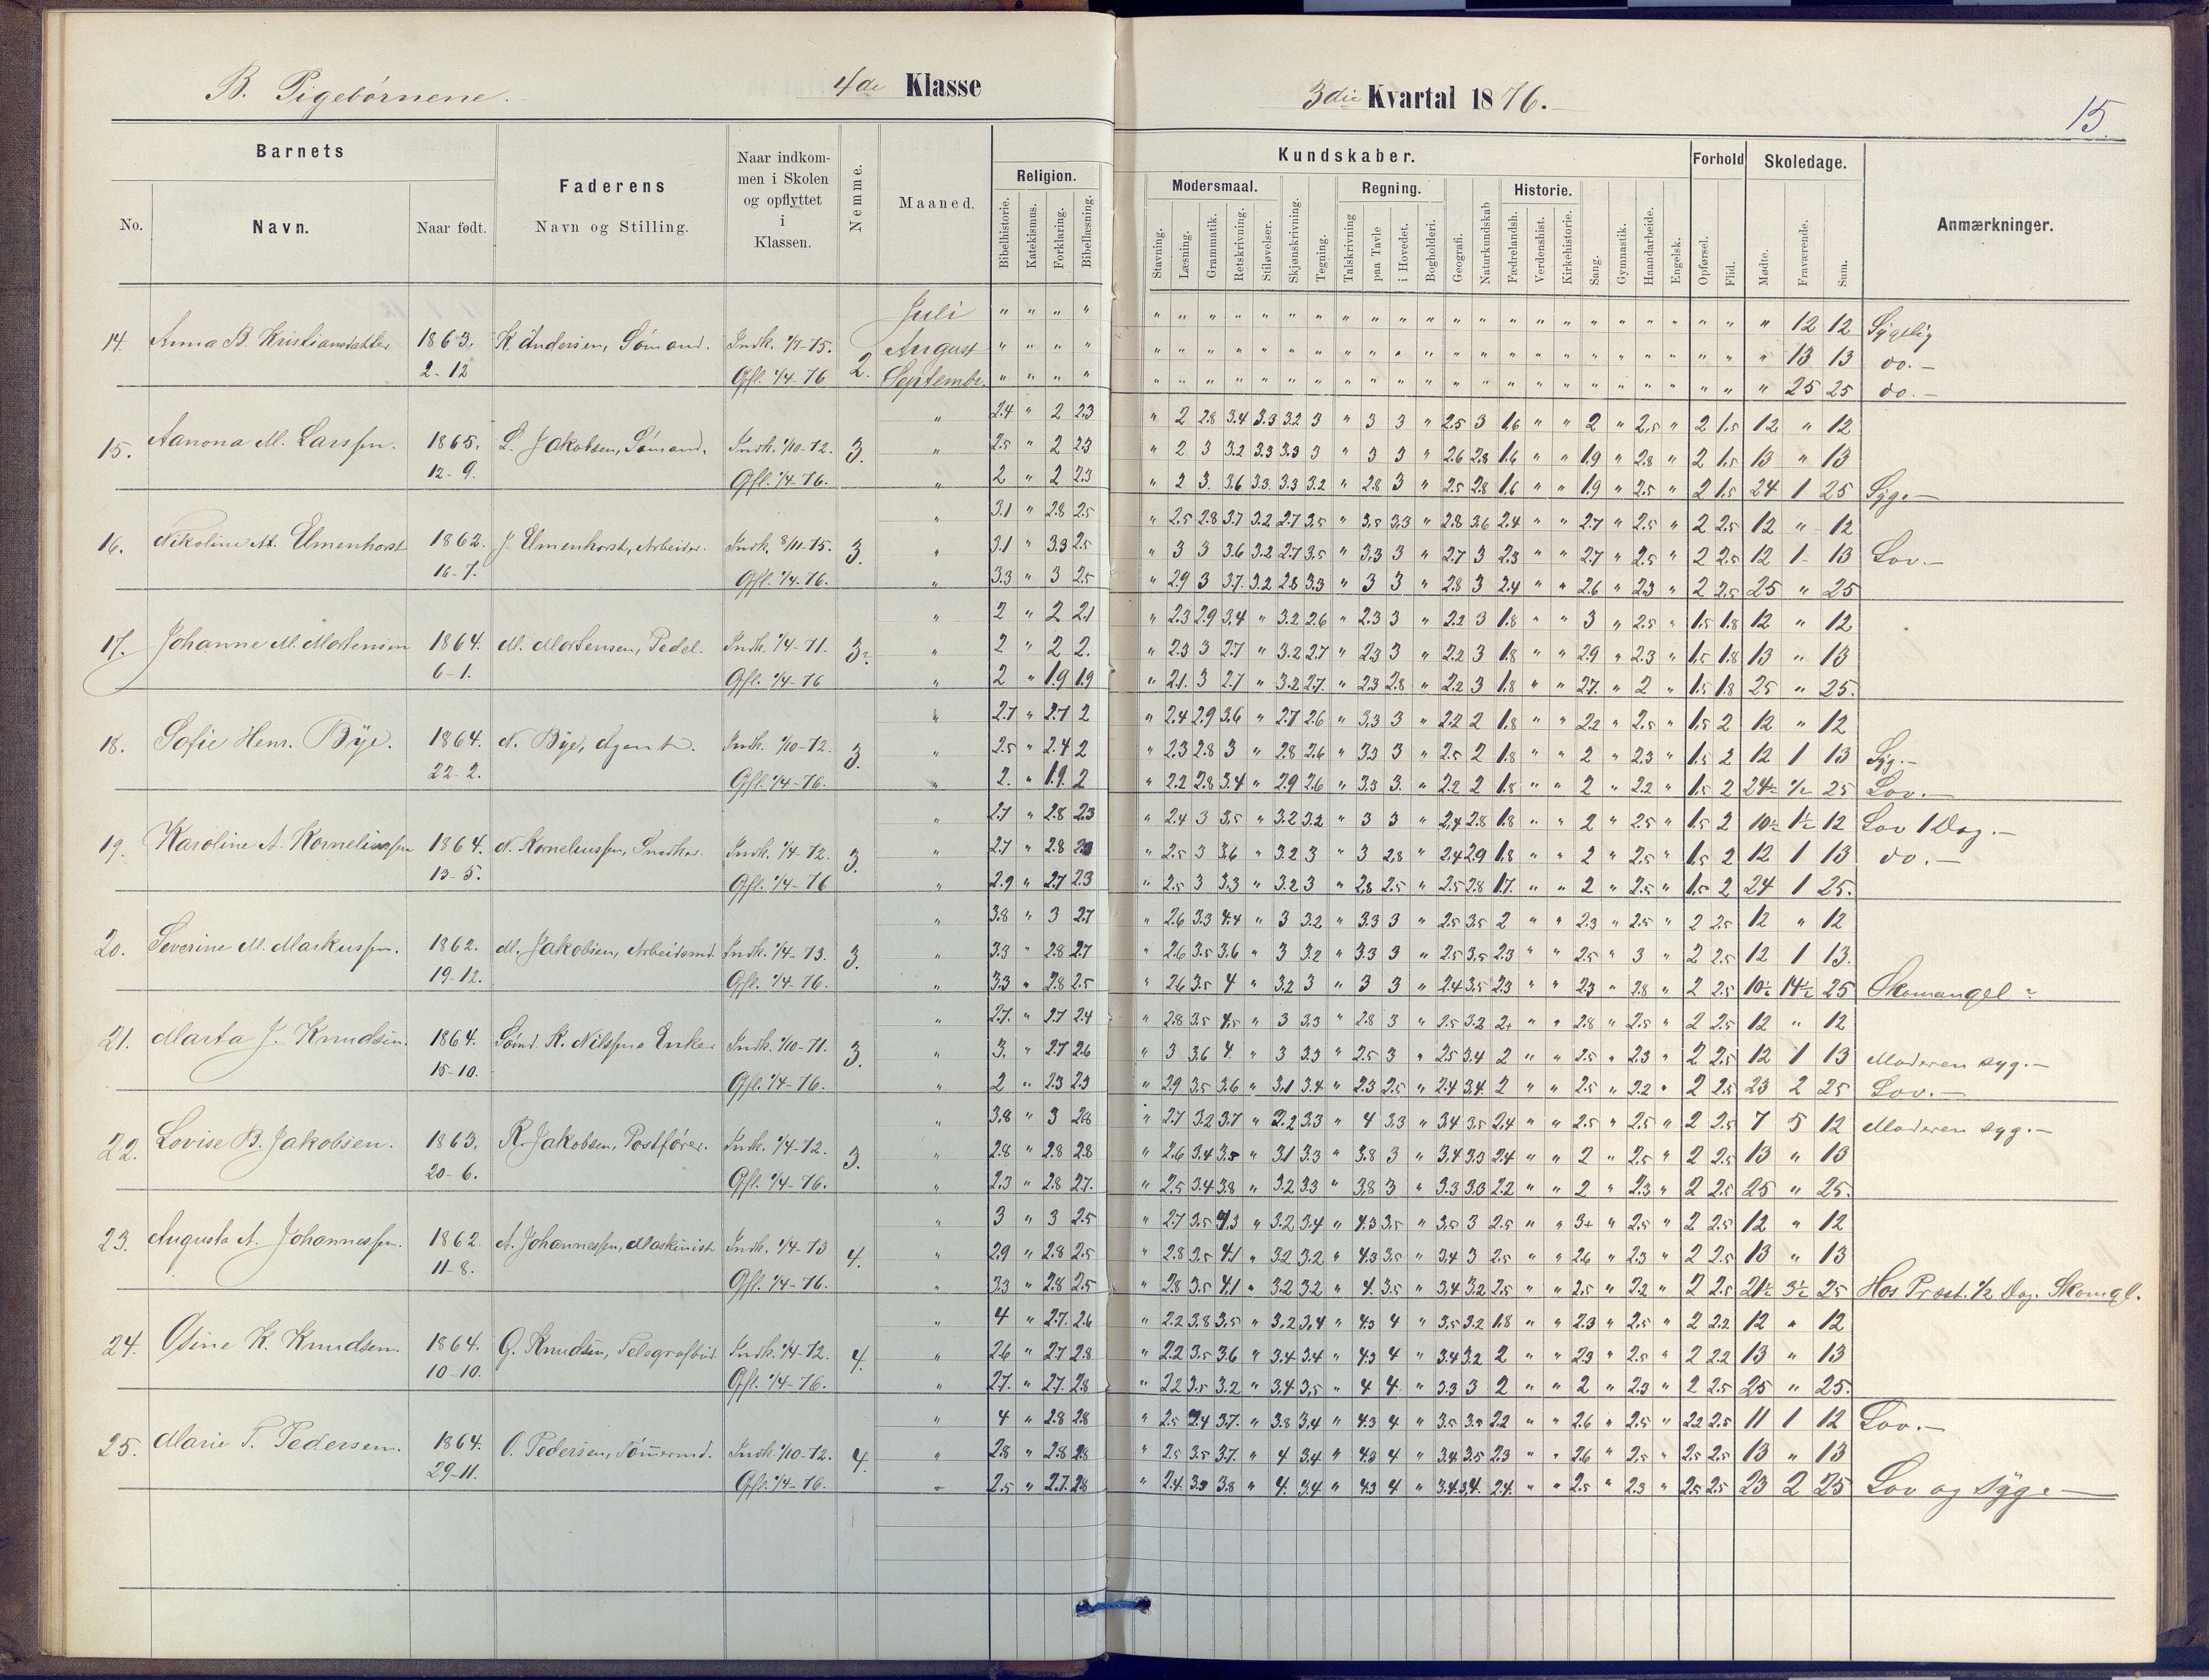 B. Pigebørnene.
4de Klasse
3die Kvartal 1876.
15.
Barnets
Faderens
Naar indkom-
men i Skolen
og opflyttet
i
Klassen.
Nemme.
Maaned.
Religion.
Kundskaber.
Forhold
Skoledage.
Anmærkninger.
No.
Navn.
Naar født.
Navn og Stilling.
Bibelhistorie.
Katekismus.
Forklaring.
Bibellæsning.
Modersmaal.
Regning.
Historie.
Stavning.
Læsning.
Grammatik.
Retskrivning.
Stiløvelser.
Skjønskrivning.
Tegning.
Talskrivning
paa Tavle
i Hovedet.
Bogholderi.
Geografi.
Naturkundskab
Fædrelandsh.
Verdenshist.
Kirkehistorie.
Sang.
Gymnastik.
Haandarbeide.
Engelsk.
Opførsel.
Flid.
Mødte.
Fraværende.
Sum.
Juli " " " " 12 12 Sygelig
14. Anna B. Kristiansdatter 1863. K. Andersen, Sømand. August " " " " 13 13 do.
2-12 Opfl. 1/4-76 2. Septembr. " " " " 25 25 do.
" 2.4 " 2 2.3 " 2 2.8 3.4 3.3 3.2 3 " 3 3 " 2.5 3 1.6 " " 2 " 2.5 " 2 1.5 12 " 12
15. Aanona M. Larssen. 1865. L. Jakobsen, Sømand. Indk. 1/10-72. 3. " 2.5 " 2 2.3 " 2 3 3.2 3.3 3.3 3 " 3 3 " 2.6 2.8 1.6 " " 1.9 " 2.8 " 2 1.5 13 " 13
12-9. Opfl. 1/4-76. " 2 " 2 2.3 " 2 3. 3.6 3.3 3.3 3.2 " 2.8 3 " 2.5 2.8 1.6 " " 1.9 " 2.5 " 2 1.5 24 1 25 Syg.
" 3.1 " 2.8 2.5 " 2.5 2.8 3.7 3.2 2.7 3.5 " 3.5 3.3 " 2.8 3.6 2.4 " " 2.7 " 2.5 " 2 2.5 12 " 12
16. Nikoline M. Elmenhorst 1862. J. Elmenhorst, Arbeider. Indk. 8/11-75. 3. " 3.1 " 3.3 2.5 " 3 3 3.6 3.2 2.7 3.5 " 3.3 3 " 2.7 3 2.3 " " 2.7 " 2.5 " 2 2.5 12 1 13 Lov.
16-7. Opfl. 1/4-76. " 3.3 " 3 2.5 " 2.9 3 3.7. 3.2 2.8 3.3 " 3 3 " 2.8 3 2.4 " " 2.6 " 2.3 " 2 2.5 25 " 25
" 2 " 2 2.1 " 2.3 2.9 3.4 " 3.2 2.6 " 2.3 3 " 2.2 3 1.8 " " 3 " 2.5 " 1.5 1.8 12 " 12
17. Johanne M. Mortensen 1864. M. Mortensen, Pedel. Indk. 1/4-71. 3. " 2 " 2 2. " 2.3 3 2.7 " 3.2 2.7 " 2.3 3 " 2.2 3 1.8 " " 2.9 " 2.3 " 1.5 1.8 13 " 13
6-1. Opfl. 1/4-76 " 2 " 1.9 1.9 " 2.1. 3 2.7 " 3.2 2.7. " 2.3 2.8 " 2.2 3 1.8 " " 2.7. " 2 " 1.5 1.8 25 " 25.
" 2.7 " 2.7 2 " 2.4 2.9 3.6 " 2.7 2.6 " 3.3 3 " 2.2 2 1.8 " " 2.2 " 2.5 " 1.5 2 12 " 12
18. Sofie Henr. Bÿe. 1864. N. Bÿe, Agent. Indk. 1/10-72. 3. " 2.5 " 2.4 2 " 2.3 2.8 3 " 2.8 2.6 " 3.3 3 " 2.5 2 1.8 " " 2 " 2.3 " 1.5 2 12 1 13 Syg.
22-2. Opfl. 1/4-76. " 2. " 1.9. 2 " 2.2 2.8 3.4 " 2.9 2.6 " 3.3 3. " 2.2 2 1.8 " " 2 " 2.2 " 1.5 2 24½ ½ 25 Lov.
" 2.7 " 2.8 2.3 " 2.4 3 3.5 " 3.2 3.2 " 3 3 " 2.4 2.8 1.8 " " 2 " 2.5 " 1.5 2 10½ 1½ 12 Lov 1 Dag.
19. Karoline A. Korneliussen 1864. N. Korneliussen, Snedker. Indk. 1/4-72. 3. " 2.7 " 2.8 " 2.5 3 3.6 " 3.2 3 " 3 2.8 " 2.4 2.9 1.8 " " 2 " 2.5 " 1.5 2 12 1 13 do.
13-5. Opfl. 1/4-76 " 2.9 " 2.7 2.3 " 2.5 3 3.3 " 3.2 3 " 2.8 2.5 " 2.5 2.8 1.7. " " 2 " 2.5 " 1.5 2 24 1 25.
" 3.8 " 3 2.7 " 2.6 3.3 4.4 " 3 3.2 " 3.3 3 " 2.5 3.5 2 " " 2.3 " 2.5 " 2 2.5 12 " 12
20. Severine M. Markussen. 1862. M. Jakobsen, Arbeidsmd. Indk. 1/4-73. 3. " 3.3 " 2.8 2.7 " 2.6 3.5 3.6 " 3 3.2 " 3.3 3 " 2.5 3.5 2.3 " " 2.5 " 3 " 2 2.5 12 1 13.
19-12. Opfl. 1/4-76. " 3.3 " 2.8 2.5 " 2.6 3.5 4 " 3.2 3 " 3 3 " 2.4 3.5 2.3 " " 2.3 " 2.8 " 2 2.5 10½ 14½ 25 Skomangel
" 2.7. " 2.7 2.4 " 2.8 3.5 4.5 " 3 3.3 " 2.8 3 " 2.5 3.2 2+ " " 2.8 " 2.5 " 2 2.5 12 " 12
21. Marta J. Knudsen. 1864. Sømd. K. Nilssens Enke. Indk. 1/10-71. 3. " 3. " 2.7 2.6 " 3 3.6 4. " 3 3.3 " 2.5 3 " 2.5 3.4 2 " " 2.5 " 2.3 " 2 2.5 12 1 13 Moderen syg.
15-10. Opfl. 1/4-76. " 2 " 2.3 2.3 " 2.9 3.5 3.6 " 3.1 3.4 " 2.3 2.5 " 2.4 3.4. 2 " " 2.5 " 2.2 " 2 2.5 23 2 25 Lov.
" 3.8 " 3 2.8 " 2.7 3.2 3.7 " 2.2 3.3 " 4 3.3 " 3.4 3.5 2.4 " " 2.5 " 2.5 " 2 2.5 7 5 12 Moderen syg.
22. Lovise B. Jakobsen. 1863. R. Jakobsen, Postfører. Indk. 1/4-72. 3. " 2.8 " 2.8 2.8 " 2.6 3.4 3.5 " 3.1 3.3 " 3.8 3 " 3.4 3.3 2.4 " " 2 " 2.5 " 2 2.5 13 " 13
20-6. Opfl. 1/4-76. " 2.3 " 2.8 2.7. " 2.5 3.4 3.8 " 3.2 3.3 " 3.8 3 " 3.3 3.3 2.2 " " 2 " 2.3 " 2 2.5 25 " 25.
" 3 " 3 2.5 " 2.7 3.5 4.3 " 3.2 3.4 " 4.3 3.5 " 3.5 3 2.5 " " 3+ " 2.5 " 2 2.5 12 " 12
23. Augusta A. Johannessen. 1862. A. Johannessen, Maskinist Indk. 1/4-73 4. " 2.9 " 2.8 2.5 " 2.8 3.5 4.1 " 3.2 3.2 " 4.3 3.5 " 3.4 3 2.5 " " 2.6 " 2.3 " 2 2.5 13 " 13
11-8. Opfl. 1/4-76. " 3.3 " 2.8 2.5 " 2.8 3.5 4.1 " 3.2 3.2 " 4. 3.5 " 3.4 3.2 2.5 " " 2.5 " 2.2 " 2 2.5 21½ 3½ 25 Hos Præst. 1/2 Dag. Skomgl.
" 4 " 2.7. 2.6 " 2.2 3.8 3.5 " 3.2 3.4 " 4.3 4 " 3.5 3.2 1.8 " " 2.3 " 2.5 " 2 2.2 12 " 12
24. Osine K. Knudsen. 1864. G. Knudsen, Telegrafbud. Indk. 1/4-72. 4. " 2.6 " 2.7 2.8 " 2.2 3.5 3.6 " 3.4 3.4 " 4.3 4 " 3.4 3.2 2 " " 2.3 " 2.5 " 2 2.2 13 " 13
10-10. Opfl. 1/4-76. " 2.7. " 2.7. 2.8 " 2.2 3.5 3.2 " 3.4 3.5 " 4 4. " 3.3 3 2 " " 2 " 2.3 " 2 2.5 25 " 25.
" 4 " 2.8 2.8 " 2.5 3.4 3.7. " 3.8 3.4 " 4.3 4 " 3.5 3.5 2.2 " " 2.6 " 2.5 " 2.2 2.5 11 1 12 Lov.
25. Marie T. Pedersen. 1864. O. Pedersen, Tømermd. Indk. 1/10-72. 4. " 2.8 " 2.8 2.8 " 2.5 3.5 3.7. " 4 3.4 " 4.3 4 " 3.4 3.5 2.3 " " 2.6 " 2.5 " 2.5 2.5 13 " 13
29-11. Opfl. 1/4-76. " 2.5 " 2.7. 2.8 " 2.4. 3.3 3.8 " 4. 3.4 " 4.3 4 " 3.4 3.4. 2.4. " " 2.5 " 2.3 " 2.5 2.5 23 2 25 Lov og syg.